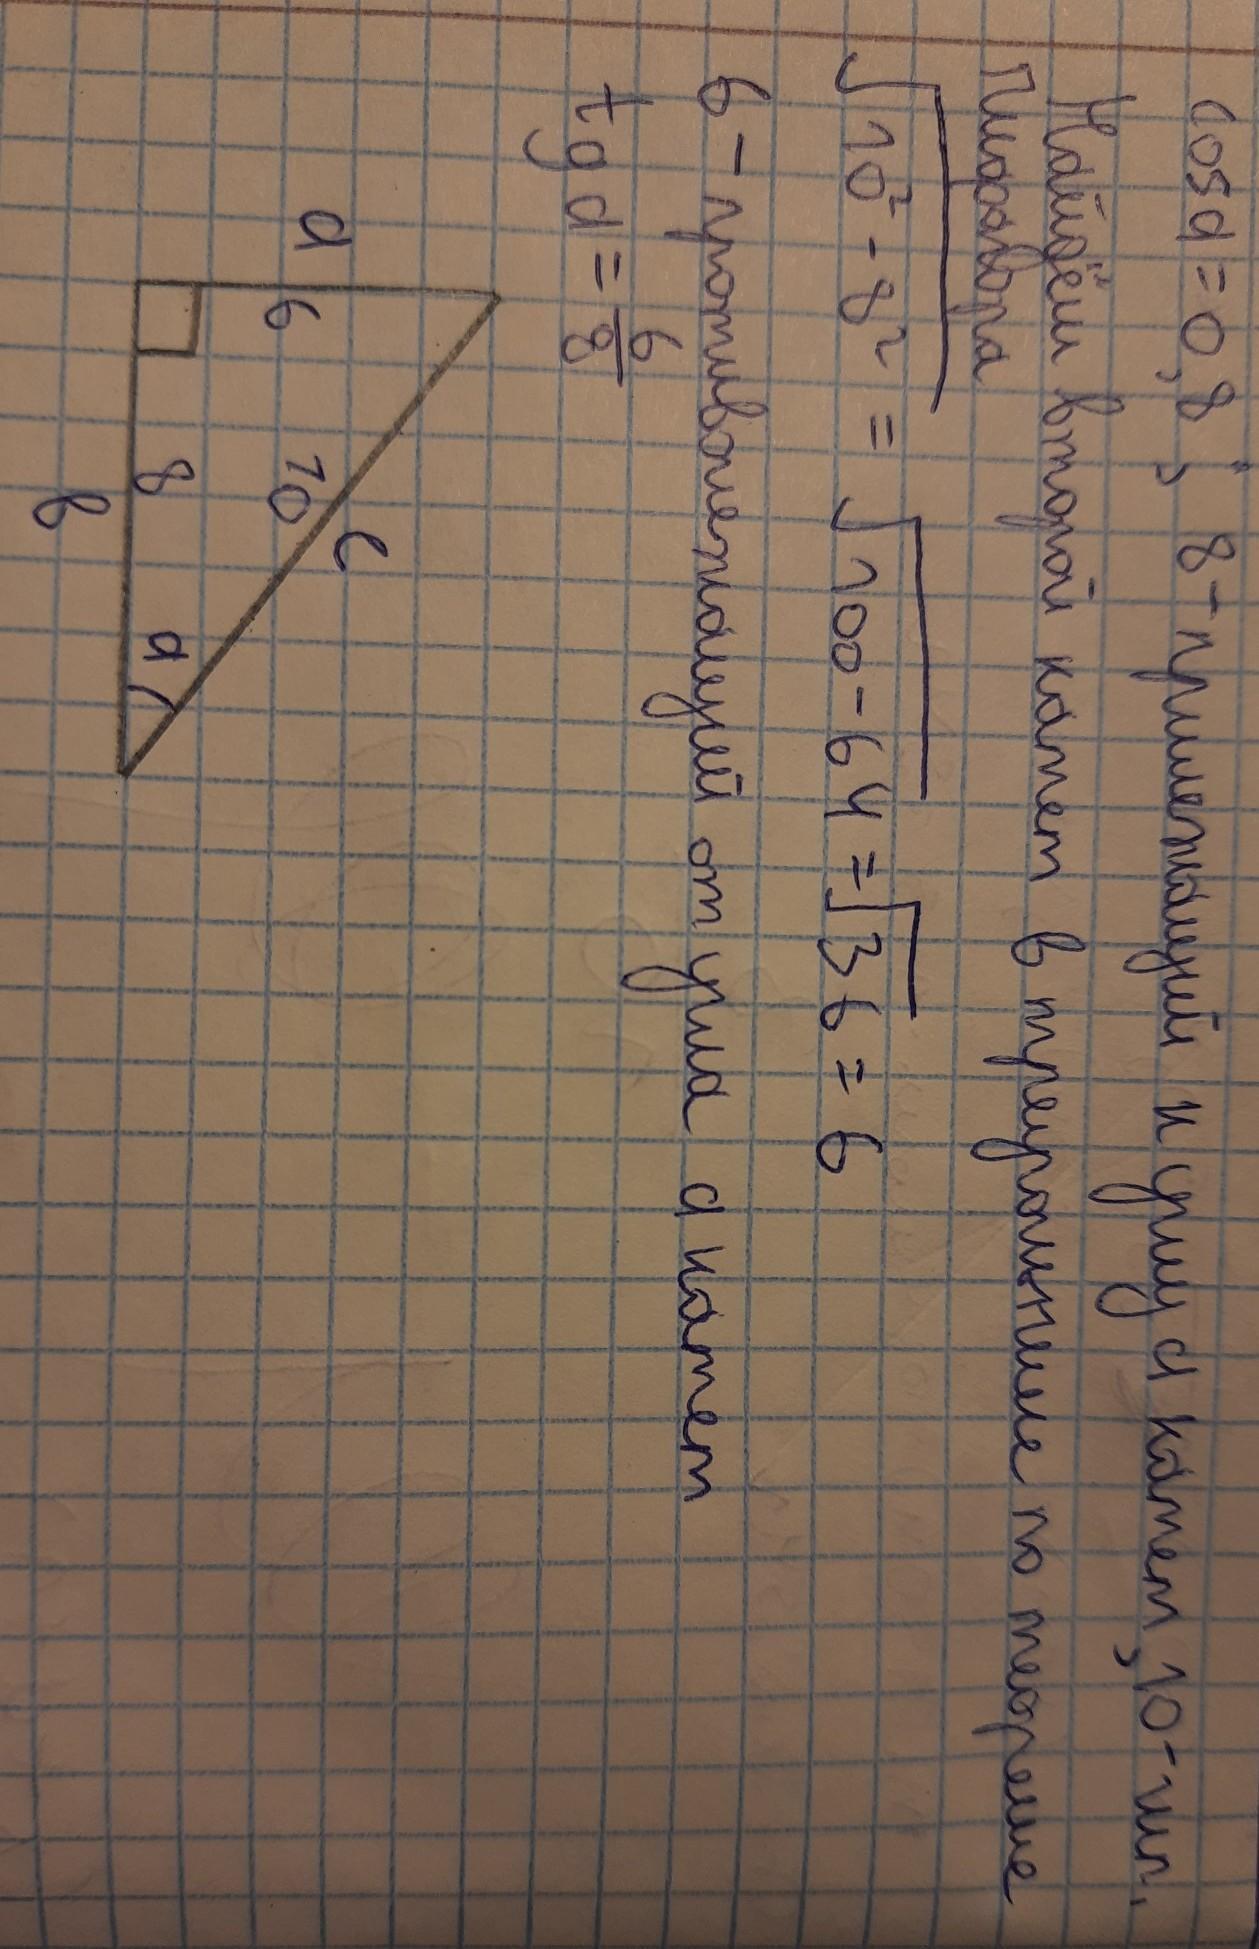 cos α = 0,8; 8 - прилежащий к углу α катет, 10 - гип.
Найдём второй катет в треугольнике по теореме
Пифагора
√10² - 8² = √100 - 64 = √36 = 6
6 - противолежащей от угла α катет
tg α = 6/8
a 6 10 c
8 α
b